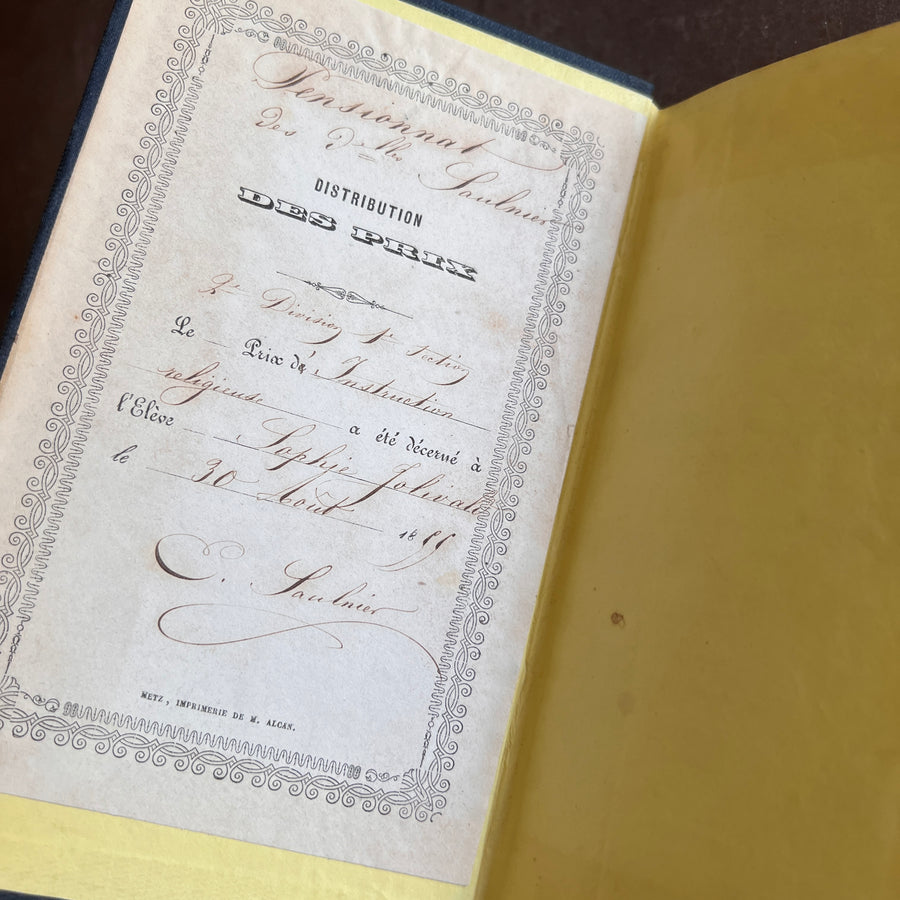 Pensionnat
des Dlles Saulnier
DISTRIBUTION
DES PRIX
2e Division 1re Section
Le Prix d'Instruction
religieuse a été décerné à
l'Elève Sophie Jolivald
le 30 Août 18
E. Saulnier
METZ, IMPRIMERIE DE M. ALCAN.